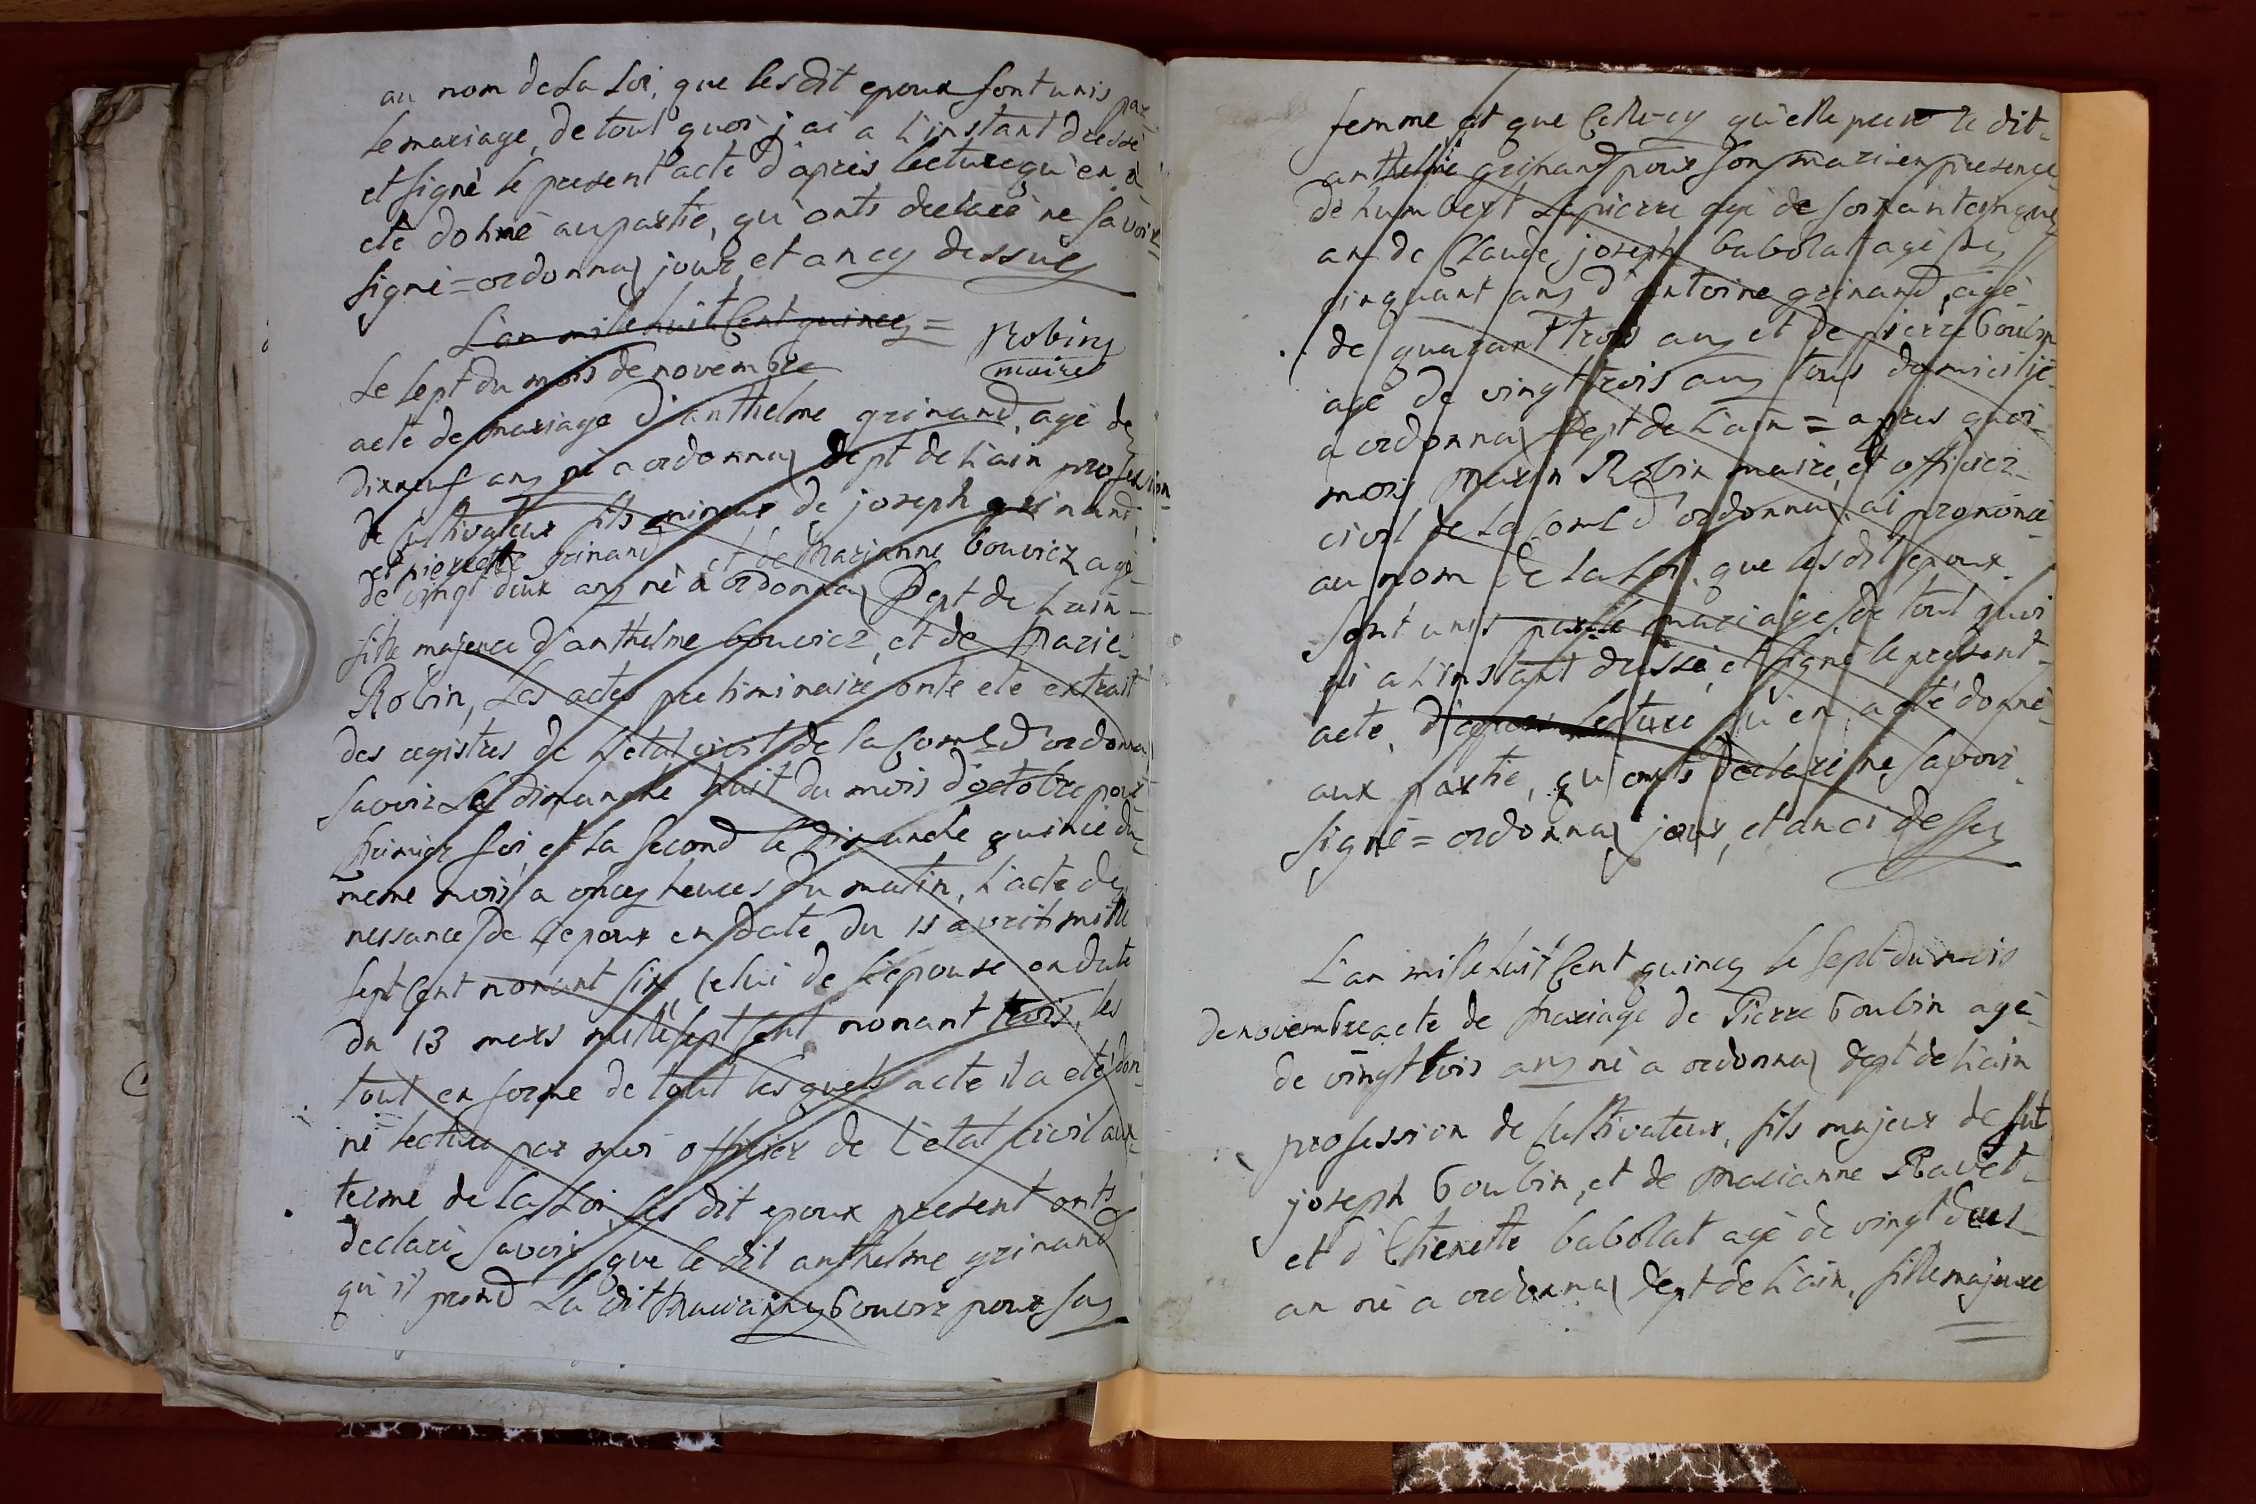 au nom de la Loi, que lesdit epoux sont unis par
le mariage, de tout quoi j ai a l'instant dressé
et signé le present acte d'après lecture qu'en a
eté donné au partie, qu'onts declaré ne savoir
signé = ordonnaz jour et an cy dessus
L'an mille huit Cent quinze =
Robin
maire
Le sept du mois de novembre
acte de mariage d'anthelme grinand, agé de
dixneuf ans né a ordonnaz dept de l'ain profession
de Cultivateur fils mineur de joseph grinand
et pierrette grinand et de Marianne bouvier agé
de vingt deux ans né a ordonnaz Dept de L'ain
fille majeure d'anthelme bouvier, et de Marie
Robin, Les actes preliminaire onte eté extrait
des registres de L'etat civil de la Com.e d'ordonnaz
Savoir Le dimanche huit du mois d'octobre pour
Premier foi, et la second le dimanche quinze du
meme mois a onze heures du matin, L'acte de
nessance de L'epoux en date du 11 avril mille
sept Cent nonant six, Celui de L'epouse en date
du 13 mars mille sept Cent nonant trois, les
tout en forme de tout les quels acte il a eté don-
né lecture par moi officier de l'etat Civil aux
terme de la Loi, les dit epoux present onts
declaré Savoir que le dit anthelme grinand
qu'il prend La dit Marianne bouvier pour sa
femme et que Celle-cy qu'elle prent le dit
anthelme grinand pour son mari en presence
de humbert Lapierre agé de soixante cinq
an de Claude joseph babolat agé de
cinquant ans d'antoine grinand agé
de quarant trois ans et de pierre boubin
agé de vingt trois ans tous domicilié
a ordonnaz Dept de L'ain = apres quoi
moi Robin maire, et officier
civil de La Com.e d'ordonnaz ai prononcé
au nom de la Loi, que lesdit epoux
sont unis par le mariage, de tout quoi
ai a l'instant dressé, et signé le present
acte, d'apres lecture qu'en a eté donné
aux partie, qu'onts declaré ne savoir
signé = ordonnaz jour, et an ci dessus
L'an mille huit Cent quinze le sept du mois
de novembre acte de Mariage de Pierre boubin agé
de vingt trois ans né a ordonnaz dept de L'ain
profession de Cultivateur, fils majeur de fut
joseph boubin, et de Marianne Ravet
et d'Etienette babolat agé de vingt deux
an né a ordonnaz dept de L'ain, fille majeure